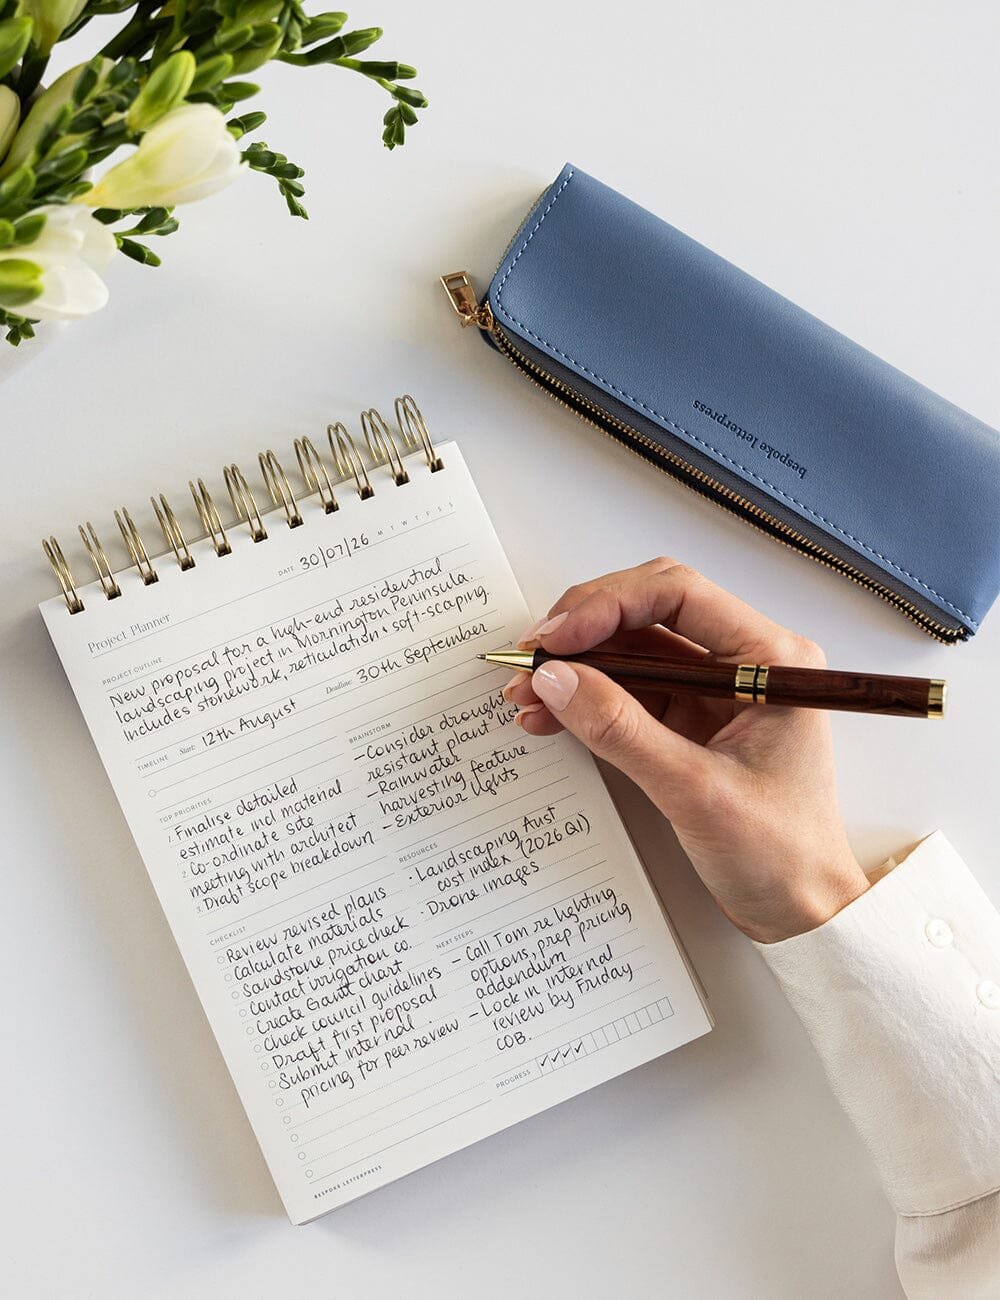 bespoke letterpress
DATE 30/07/26 M T W T F S S
Project Planner
PROJECT OUTLINE
New proposal for a high-end residential
landscaping project in Mornington Peninsula.
Includes stonework, reticulation & soft-scaping.
TIMELINE Start: 12th August Deadline: 30th September
TOP PRIORITIES
1. Finalise detailed
estimate incl material
2. Co-ordinate site
meeting with architect
3. Draft scope breakdown
BRAINSTORM
- Consider drought
resistant plant list
- Rainwater
harvesting feature
- Exterior lights
RESOURCES
· Landscaping Aust
cost index (2026 Q1)
· Drone images
CHECKLIST
Review revised plans
Calculate materials
Sandstone price check
Contact irrigation co.
Create Gantt chart
Check council guidelines
Draft first proposal
Submit internal
pricing for peer review
NEXT STEPS
- Call Tom re lighting
options, prep pricing
addendum
- Lock in internal
review by Friday
COB.
PROGRESS ✓✓✓✓
BESPOKE LETTERPRESS